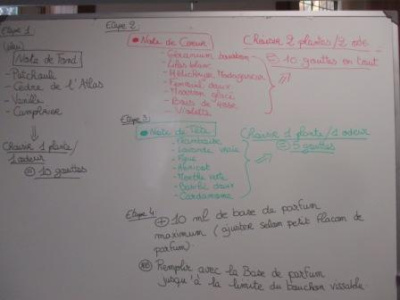 Etape 1
Note de Fond
- Patchouli
- Cèdre de l'Atlas
- Vanille
- Camphrier
⇓
Choisir 1 plante/
1 odeur
10 gouttes
Etape 2
• Note de Coeur
Choisir 2 plantes/2 ode
- Géranium bourbon
- Lilas blanc
- Héliotrope Madagascar
- Fenouil doux
- Marron glacé
- Bois de rose
- Violette
10 gouttes en tout
Etape 3
• Note de Tête
Choisir 1 plante/1 odeur
5 gouttes
- Lavande vraie
- Figue
- Abricot
- Menthe verte
- Basilic doux
- Cardamome
Etape 4
⊕ 10 ml de base du parfum
maximum (ajuster selon petit flacon de
parfum)
Remplir avec la Base de parfum
jusqu'à la limite du bouchon vissable.